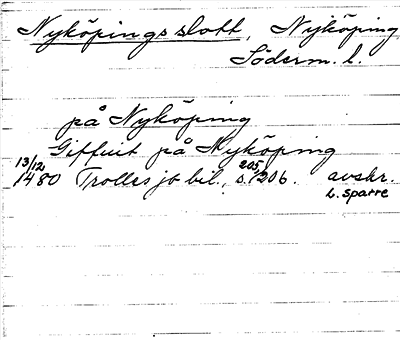 Nyköpings slott, Nyköping
Söderm. l.
på Nyköping
Giffuit på Nyköping
13/12
1480 Trolles jb bil., s. 205/206. avskr.
L. Sparre